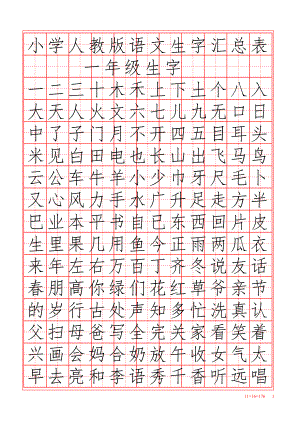 小学人教版语文生字汇总表
一年级生字
一二三十木禾上下土个八入
大天人火文六七儿九无口日
中了子门月不开四五目耳头
米见白田电也长山出飞马鸟
云公车牛羊小少巾牙尺毛卜
又心风力手水广升足走方半
巴业本平书自已东西回片皮
生里果几用鱼今正雨两瓜衣
来年左右万百丁齐冬说友话
春朋高你绿们花红草爷亲节
的岁行古处声知多忙洗真认
父扫母爸写全完关家看笑着
兴画会妈合奶放午收女气太
早去亮和李语秀千香听远唱